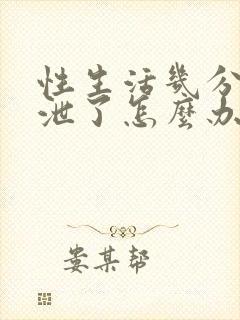 性生活幾分
泄了怎麼办
娄某帮